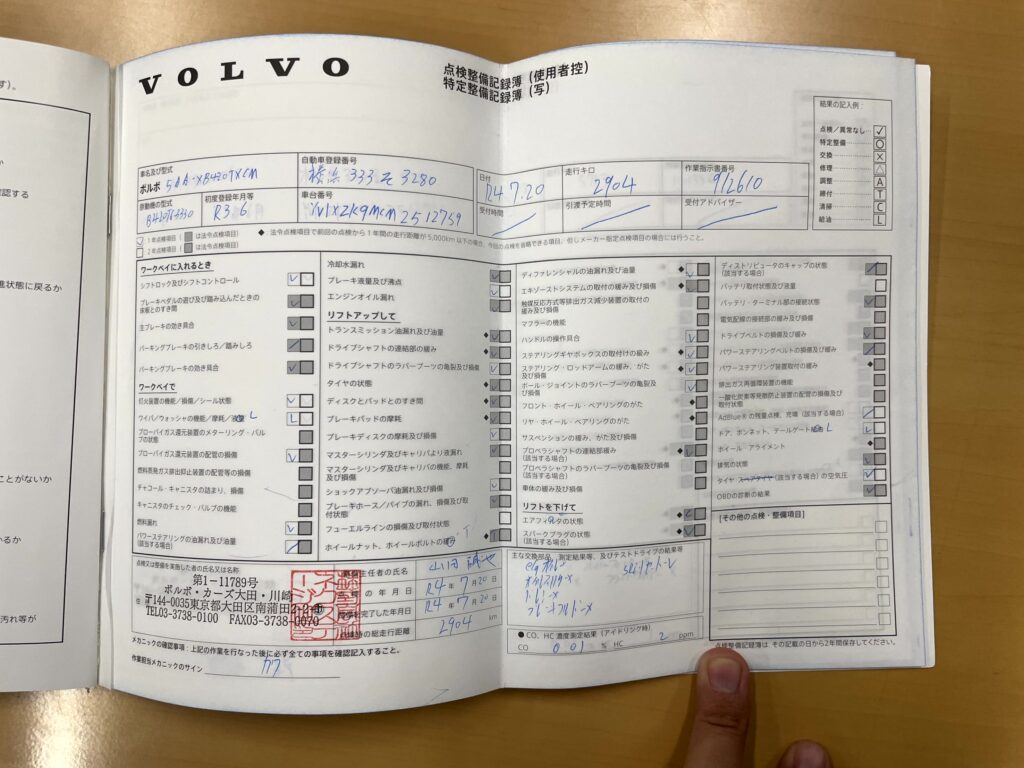 す)。
VOLVO
点検整備記録簿 (使用者控)
特定整備記録簿 (写)
結果の記入例:
点検/異常なし… ✓
特定整備… ○
交換… ×
修理… △
調整… A
締付… T
清掃… C
給油… L
車名及び型式
ボルボ 5AA-XB420TXCM
自動車登録番号
横浜 333 そ 3280
日付
R4.7.20
走行キロ
2904
作業指示書番号
912610
原動機の型式
初度登録年月等
R3.6
車台番号
受付時間
引渡予定時間
受付アドバイザー
1年点検項目 ( は法令点検項目)
2年点検項目 ( は法令点検項目)
◆:法令点検項目で前回の点検から1年間の走行距離が5,000km以下の場合、今回の点検を省略できる項目。但しメーカー指定点検項目の場合には行うこと。
ワークベイに入れるとき
シフトロック及びシフトコントロール
ブレーキペダルの遊び及び踏み込んだときの床板とのすき間
主ブレーキの効き具合
パーキングブレーキの引きしろ/踏みしろ
パーキングブレーキの効き具合
ワークベイで
灯火装置の機能/損傷/シール状態
ワイパ/ウォッシャの機能/摩耗/液量 L
ブローバイガス還元装置のメターリング・バルブの状態
ブローバイガス還元装置の配管の損傷
燃料蒸発ガス排出抑止装置の配管等の損傷
チャコール・キャニスタの詰まり、損傷
キャニスタのチェック・バルブの機能
燃料漏れ
パワーステアリングの油漏れ及び油量
(該当する場合)
冷却水漏れ
ブレーキ液量及び沸点
エンジンオイル漏れ
リフトアップして
トランスミッション油漏れ及び油量
ドライブシャフトの連結部の緩み
ドライブシャフトのラバーブーツの亀裂及び損傷
タイヤの状態
ディスクとパッドとのすき間
ブレーキパッドの摩耗
ブレーキディスクの摩耗及び損傷
マスターシリンダ及びキャリパより液漏れ
マスターシリンダ及びキャリパの機能、摩耗及び損傷
ショックアブソーバ油漏れ及び損傷
ブレーキホース/パイプの漏れ、損傷及び取付状態
フューエルラインの損傷及び取付状態
ホイールナット、ホイールボルトの緩み T
ディファレンシャルの油漏れ及び油量
エキゾーストシステムの取付の緩み及び損傷
触媒反応方式等排出ガス減少装置の取付の緩み及び損傷
マフラーの機能
ハンドルの操作具合
ステアリングギヤボックスの取付けの緩み
ステアリング・ロッドアームの緩み、がた及び損傷
ボール・ジョイントのラバーブーツの亀裂及び損傷
フロント・ホイール・ベアリングのがた
リヤ・ホイール・ベアリングのがた
サスペンションの緩み、がた及び損傷
プロペラシャフトの連結部緩み
(該当する場合)
プロペラシャフトのラバーブーツの亀裂及び損傷
(該当する場合)
車体の緩み及び損傷
リフトを下げて
エアフィルタの状態
スパークプラグの状態
ディストリビュータのキャップの状態
(該当する場合)
バッテリ取付状態及び液量
バッテリ・ターミナル部の接続状態
電気配線の接続部の緩み及び損傷
ドライブベルトの損傷及び緩み
パワーステアリングベルトの損傷及び緩み
パワーステアリング装置取付の緩み
排出ガス再循環装置の機能
一酸化炭素等発散防止装置の配管の損傷及び取付状態
AdBlue®の残量点検、充填 (該当する場合)
ドア、ボンネット、テールゲート給油 L
ホイール・アライメント
排気の状態
タイヤ・スペアタイヤ(該当する場合)の空気圧
OBDの診断の結果
[その他の点検・整備項目]
点検又は整備を実施した者の氏名又は名称
第1-11789号
ボルボ・カーズ大田・川崎
〒144-0035東京都大田区南蒲田2-2-1
TEL03-3738-0100 FAX03-3738-0070
主任者の氏名
点検の年月日 R4年 7月 20日
整備を完了した年月日 R4年 7月 20日
点検時の総走行距離 2904 km
主な交換部品、測定結果等、及びテストドライブの結果等
● CO、HC 濃度測定結果 (アイドリング時)
CO 0.01 % HC 2 ppm
点検整備記録簿は、その記載の日から2年間保存してください。
メカニックの確認事項:上記の作業を行なった後に必ず全ての事項を確認記入すること。
作業担当メカニックのサイン
か
認する
進状態に戻るか
ことがないか
いるか
汚れ等が